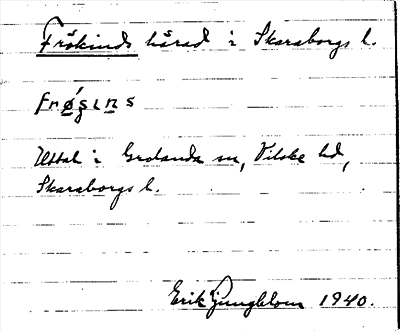 Frökinds härad i Skaraborgs l.
frǿşıns
Uttal i Grolanda sn, Vilske hd,
Skaraborgs l.
Erik Ljungblom 1940.